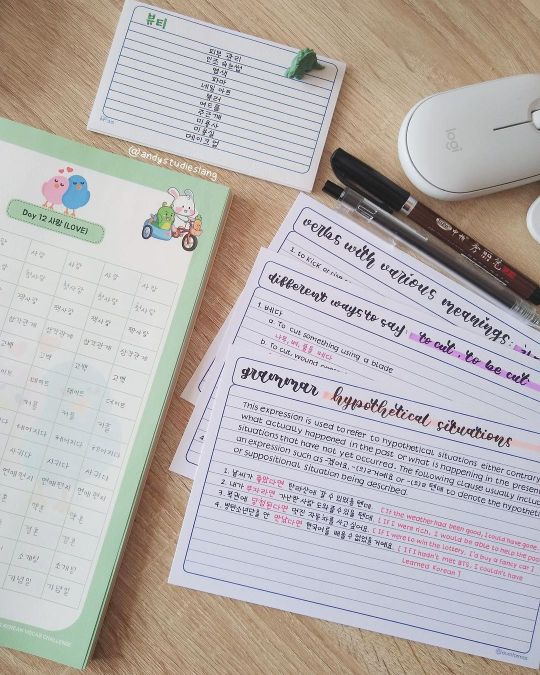 뷰티
피부 관리
인조 속눈썹
염색
파마
네일 아트
컬러
여드름
주근깨
미용사
미용실
메이크업
@andystudieslang
Day 12 사랑 (LOVE)
사랑 사랑 사랑 사랑
첫사랑 첫사랑 첫사랑
짝사랑 짝사랑 짝사랑 짝사랑
삼각관계 삼각관계 삼각관계 삼각관계
고백 고백 고백 고백
데이트 데이트 데이트
커플 커플 커플
헤어지다 헤어지다 헤어지다
사귀다 사귀다 사귀다 사귀다
연애편지 연애편지 연애편지
약혼
결혼 결혼
소개팅 소개팅 소개팅
기념일 기념일 기념일
KOREAN VOCAB CHALLENGE
logi
verbs with various meanings:
1. to kick or
different ways to say: to cut, to be cut
1. 베다
a. To cut something using a blade
나무, 벼, 풀을 베다
b. To cut, wound
grammar hypothetical situations
This expression is used to refer to hypothetical situations either contrary
what actually happened in the past or what is happening in the present
situations that have not yet occurred. The following clause usually include
an expression such as -겠어요, -(으)ㄹ거예요 or -(으)ㄹ 텐데 to denote the hypothetic
or suppositional situation being described.
1. 날씨가 좋았다면 한라산에 갈 수 있었을 텐데. [ If the weather had been good, I could have gone
2. 내가 부자라면 가난한 사람 도와줄 수 있을 텐데. [ If I were rich, I would be able to help the poor
3. 복권에 당첨된다면 멋진 자동차를 사고 싶어요. [ If I were to win the lottery, I'd buy a fancy car ]
4. 방탄소년단을 안 만났다면 한국어를 배울 수 없었을 거예요. [ If I hadn't met BTS, I couldn't have
Learned Korean ]